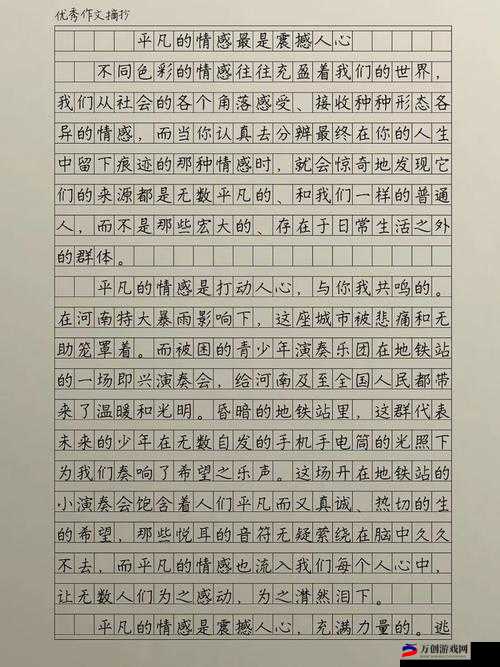 优秀作文摘抄
平凡的情感最是震撼人心
不同色彩的情感往往充盈着我们的世界，
我们从社会的各个角落感受、接收种种形态各
异的情感，而当你认真去分辨最终在你的人生
中留下痕迹的那种情感时，就会惊奇地发现它
们的来源都是无数平凡的、和我们一样的普通
人，而不是那些宏大的、存在于日常生活之外
的群体。
平凡的情感是打动人心，与你我共鸣的。
在河南特大暴雨影响下，这座城市被悲痛和无
助笼罩着。而被困的青少年演奏乐团在地铁站
的一场即兴演奏会，给河南及至全国人民都带
来了温暖和光明。昏暗的地铁站里，这群代表
未来的少年在无数自发的手机手电筒的光照下
为我们奏响了希望之乐声。这场开在地铁站的
小演奏会饱含着人们平凡而又真诚、热切的生
的希望，那些悦耳的音符无疑萦绕在脑中久久
不去，而平凡的情感也流入我们每个人心中，
让无数人们为之感动，为之潸然泪下。
平凡的情感是震撼人心，充满力量的。逃
万创游戏网